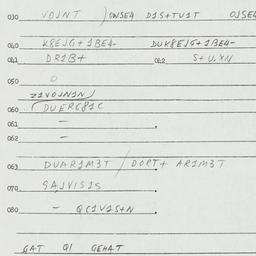 030 VOINT )OWSE4 D1S+TU1T OJSE4
040 K8EJG+1BE4- DUK8EJG+1BE4-
041 DR1B+ 042 S+U,XN
050 O
Z1VOJN1N)
060 DUERC81C
061 -
062 -
063 DUAR1M3T / DORT+ AR1M3T
070 GAJVIS1S
080 - QC1V1S+N
GAT Q1 GEHAT